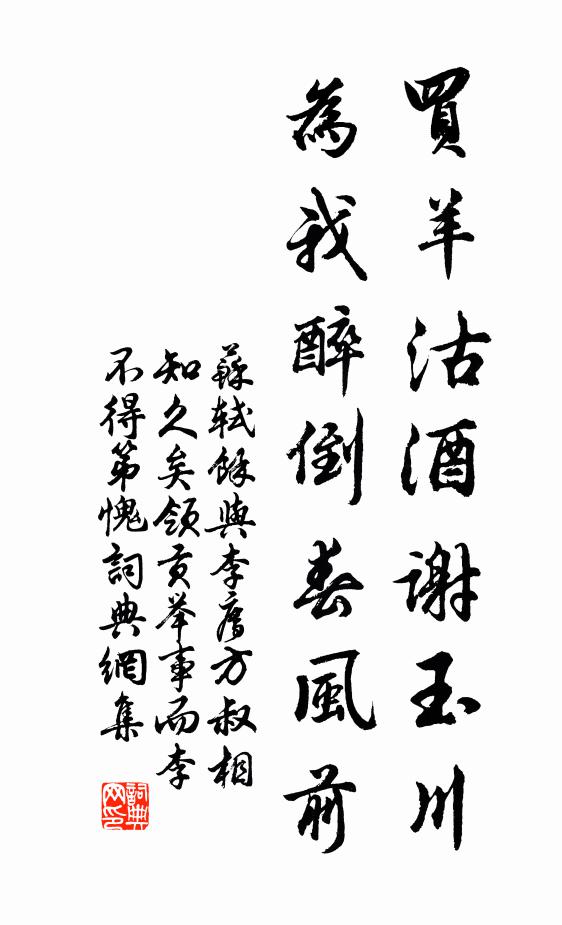 買羊沽酒謝玉川
為我醉倒春風前
蘇軾餘與李廌方叔相
知久矣領貢举事而李
不得第愧詞典網集
詞典网印